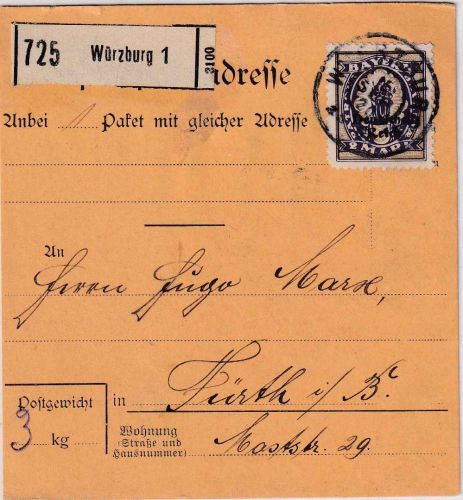 725 Würzburg 1 2100
dresse
BAYERN
Deutsches
Reich
2 MARK
Anbei 1 Paket mit gleicher Adresse
An
Herrn Hugo Marx,
Postgewicht
3 kg
in Fürth i/B.
Wohnung
(Straße und
Hausnummer)
Moststr. 29.